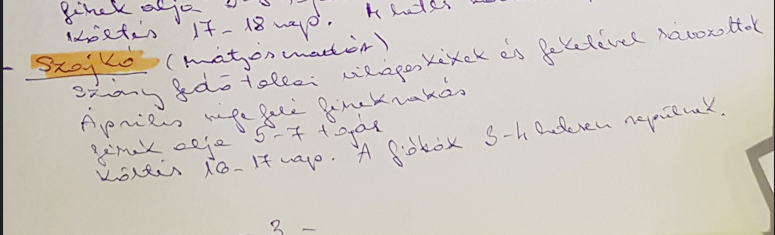 fészek alja 5-
Költés 17-18 nap. 4 hetes
- Szajkó (mátyásmadár)
Szárny fedő tollai világoskékek és feketével sávozottak
Április vége felé fészekrakás
fészek alja 5-7 tojás
Költés 16-17 nap. A fiókák 3-4 hetesen repülnek.
3 -